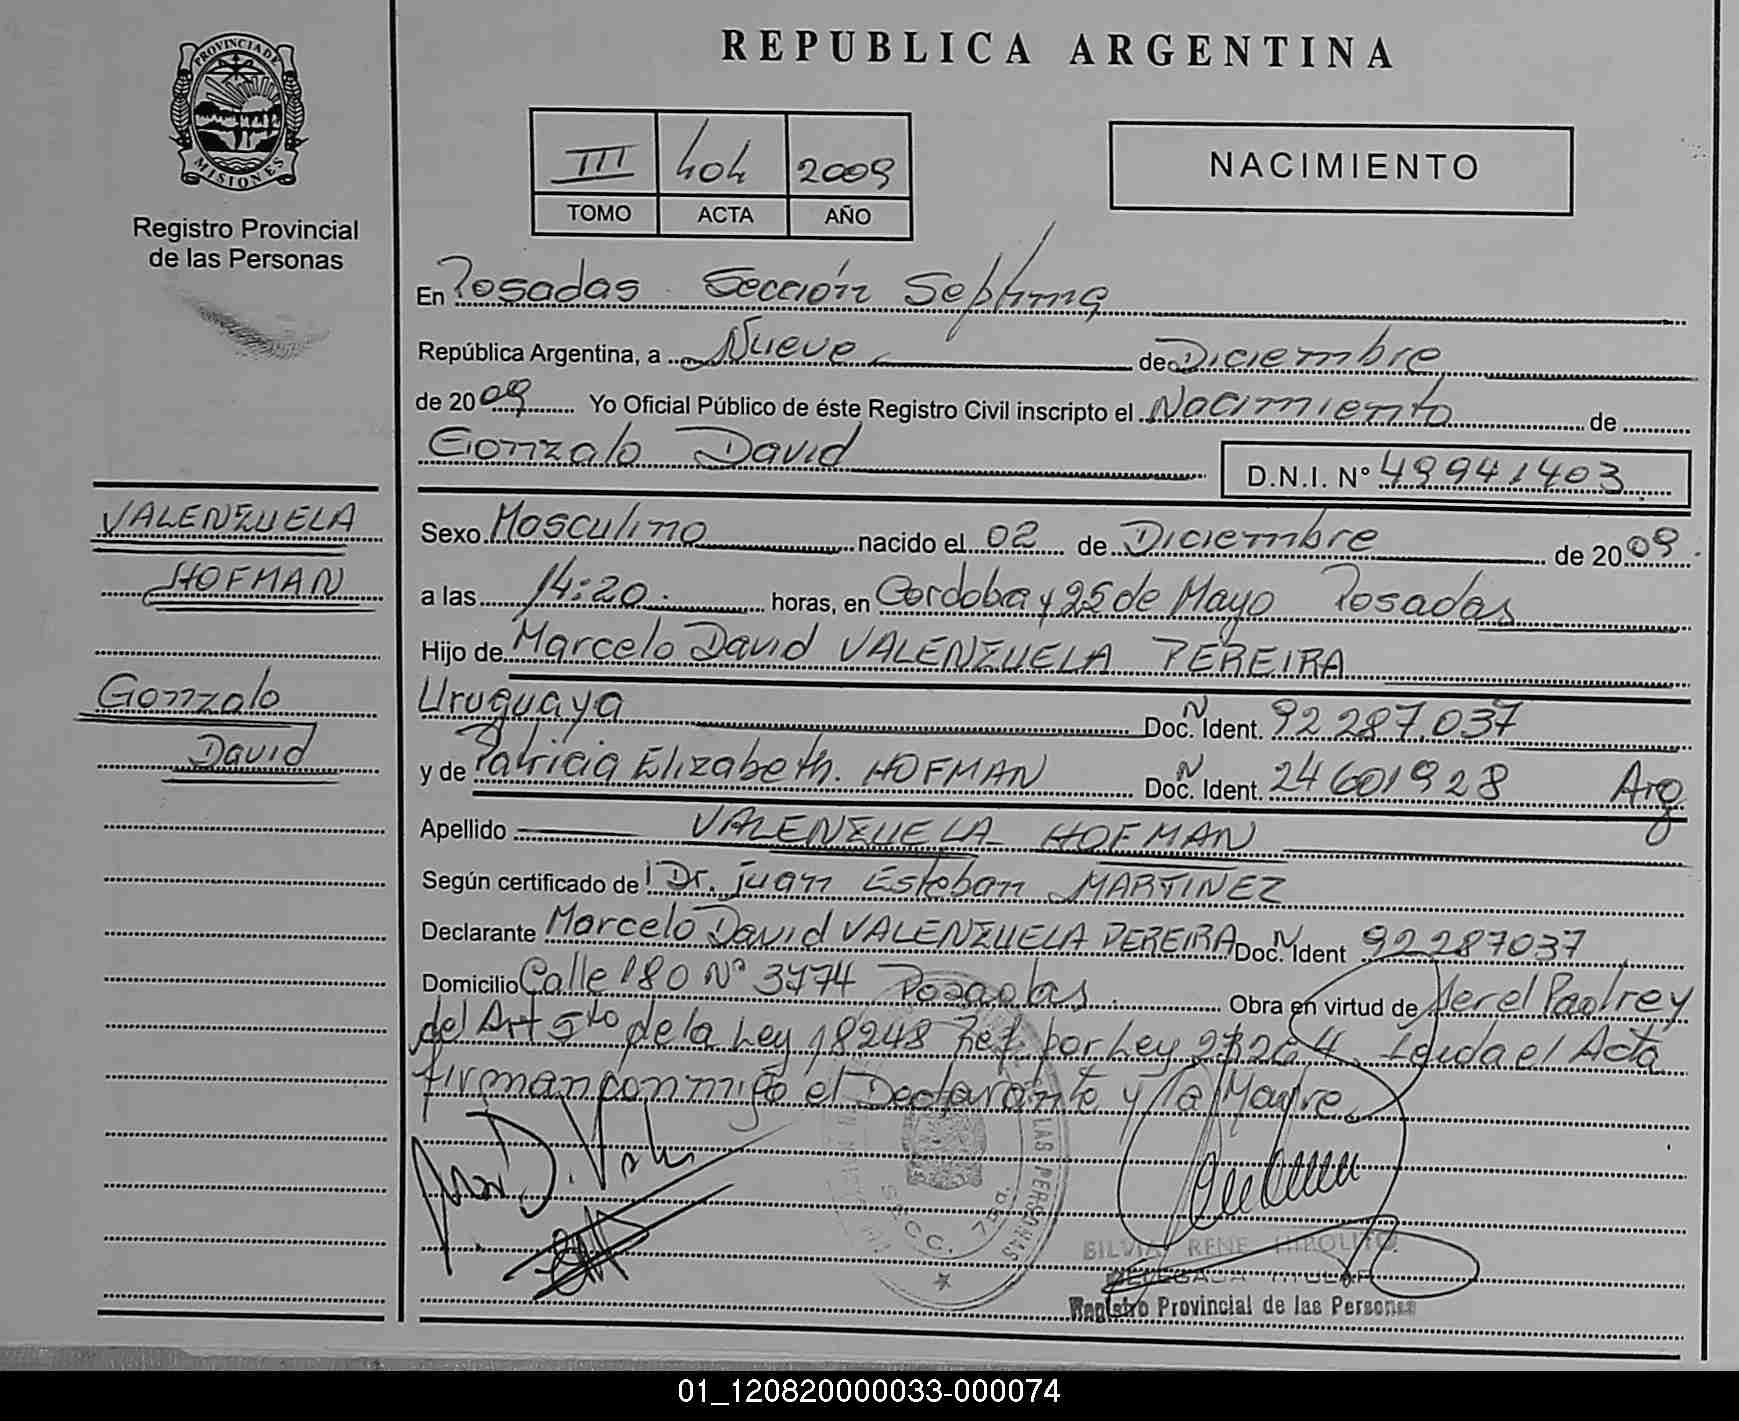 REPUBLICA ARGENTINA
PROVINCIA DE
MISIONES
Registro Provincial
de las Personas
III 404 2009
TOMO ACTA AÑO
NACIMIENTO
En Posadas Sección Septima
República Argentina, a Nueve de Diciembre
de 2009 Yo Oficial Público de éste Registro Civil inscripto el Nacimiento de
Gonzalo David
D.N.I. N° 49941403
VALENZUELA
HOFMAN
Gonzalo
David
Sexo Masculino nacido el 02 de Diciembre de 2009.
a las 14:20. horas, en Cordoba y 25 de Mayo Posadas
Hijo de Marcelo David VALENZUELA PEREIRA
Uruguaya Doc. N Ident. 92.287.037
y de Patricia Elizabeth. HOFMAN Doc. N Ident. 24601928 Arg.
Apellido VALENZUELA HOFMAN
Según certificado de Dr. Juan Esteban MARTINEZ
Declarante Marcelo David VALENZUELA PEREIRA Doc. N Ident 92287037
Domicilio Calle 180 N° 3774 Posadas. Obra en virtud de ser el Padre y
del Art 5to de la Ley 18248 Ref. por Ley Leida el Acta
firman conmigo el Declarante y la Madre.
LAS PERSONAS
SECC. 7ma.
SILVIA RENE HIPOLITO
DELEGADA TITULAR
Registro Provincial de las Personas
01_120820000033-000074